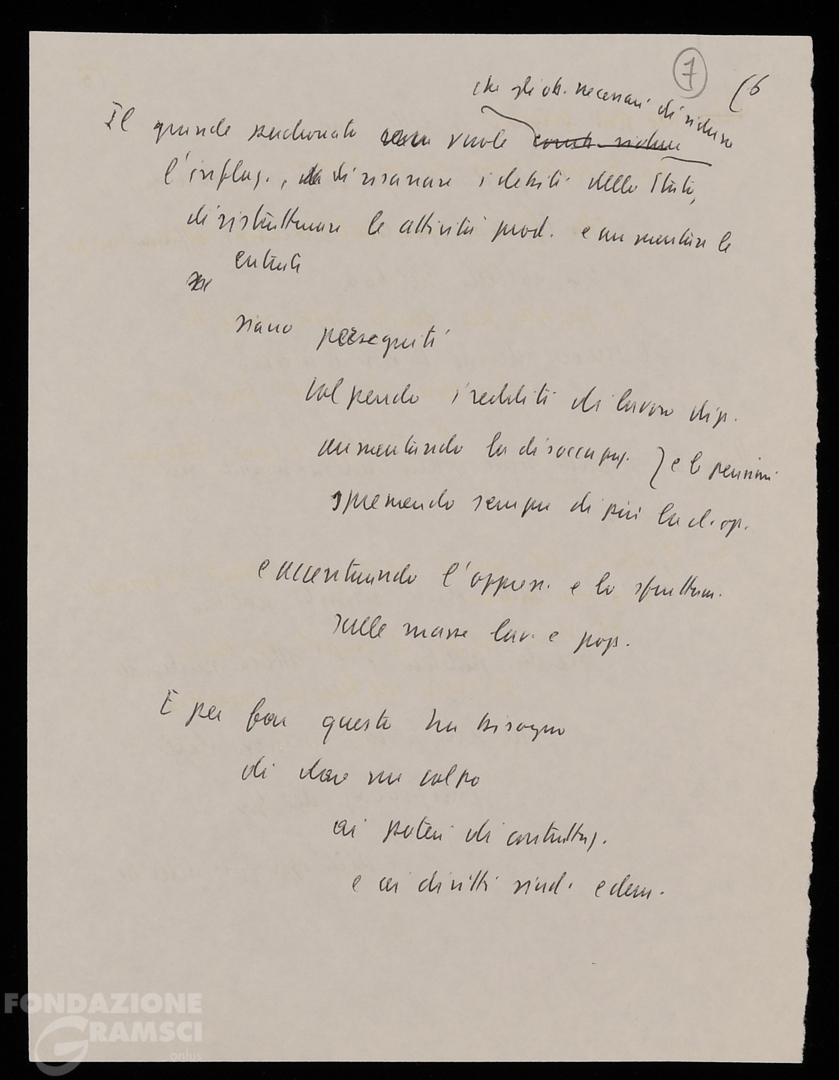 7 (6
che gli ob. necessari di ridurre
Il grande padronato vuole
l'inflaz., di risanare i debiti dello Stato,
di ristrutturare le attività prod. e aumentare le
entrate
siano perseguiti
colpendo i redditi di lavoro dip.
aumentando la disoccupaz. } e le pensioni
spremendo sempre di più la cl. op.
e accentuando l'oppress. e lo sfruttam.
sulle masse lav. e pop.
E per fare questo ha bisogno
di dare un colpo
ai poteri di contrattaz.
e ai diritti sind. e dem.
FONDAZIONE
GRAMSCI
onlus